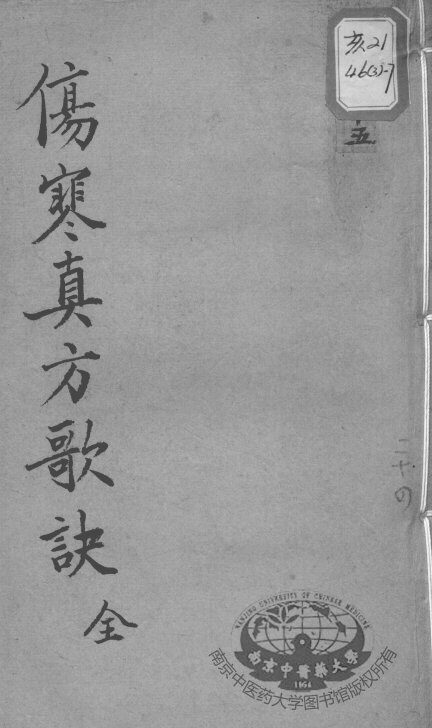 傷寒真方歌訣 全
亥21
46(3)-7
五
二十四
NANJING UNIVERSITY OF CHINESE MEDICINE
南京中醫藥大學
1954
南京中医药大学图书馆版权所有